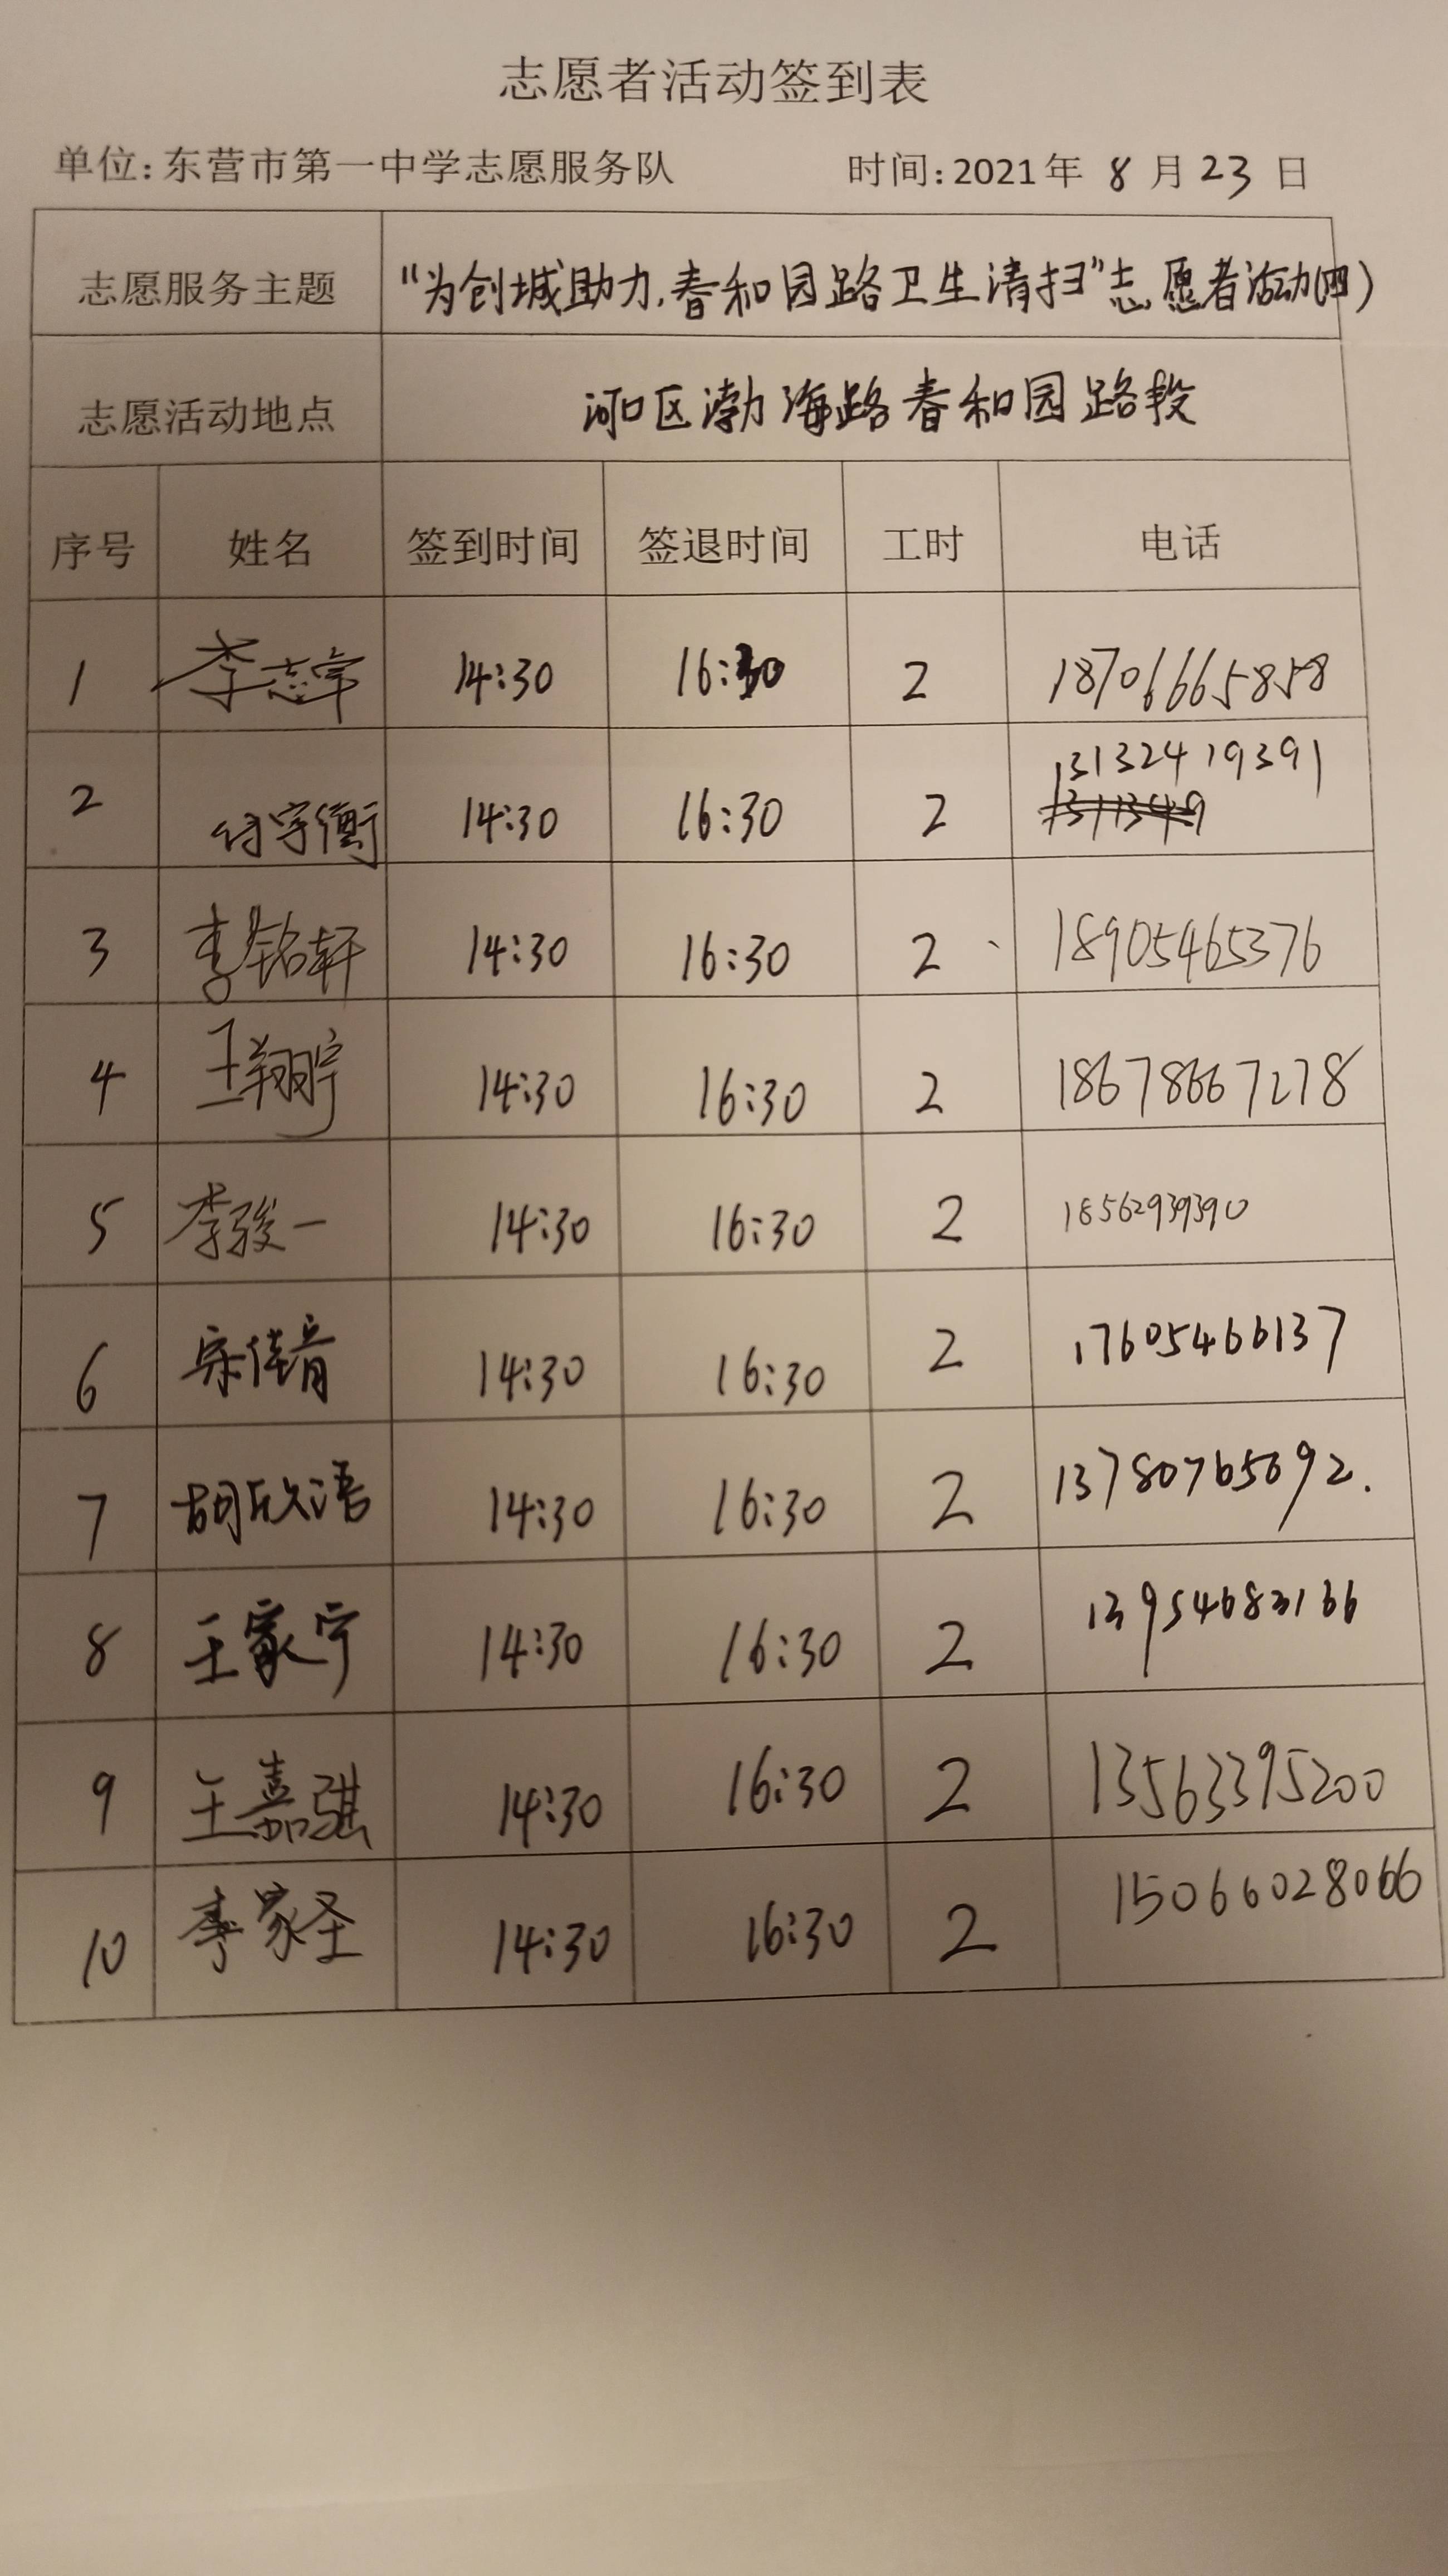 志愿者活动签到表
单位:东营市第一中学志愿服务队 时间:2021年 8 月 23 日
志愿服务主题 “为创城助力,春和园路卫生清扫”志愿者活动(四)
志愿活动地点 河口区渤海路春和园路段
序号 姓名 签到时间 签退时间 工时 电话
1 李志宇 14:30 16:30 2 18706665858
2 付宇衡 14:30 16:30 2 13132419391
3 李铭轩 14:30 16:30 2 18905465376
4 王翔宇 14:30 16:30 2 18678667278
5 李骏一 14:30 16:30 2 18562939390
6 宋佳音 14:30 16:30 2 17605466137
7 胡欣语 14:30 16:30 2 13780765692.
8 王家宁 14:30 16:30 2 13954683166
9 王嘉骐 14:30 16:30 2 13563395200
10 李家圣 14:30 16:30 2 15066028066